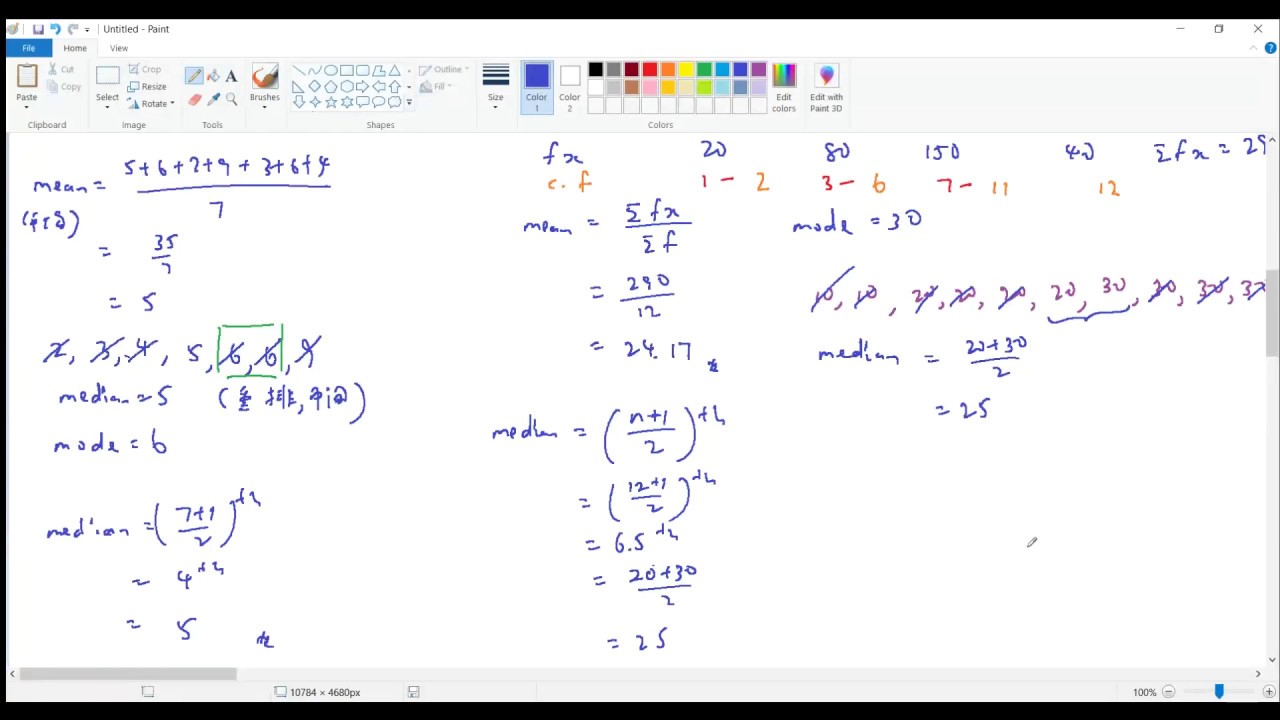 Untitled - Paint
File Home View
Paste
Cut
Copy
Clipboard
Select
Crop
Resize
Rotate
Image
A
Tools
Brushes
Shapes
Outline
Fill
Size
Color 1
Color 2
Colors
Edit colors
Edit with Paint 3D
mean = 5+6+2+9+3+6+4
7
= 35
7
= 5
2, 3, 4, 5, 6, 6, 9
median = 5 (重排, 中间)
mode = 6
median = (7+1
2)th
= 4th
= 5
fx 20 80 150 40 Σfx = 29
c.f 1 - 2 3 - 6 7 - 11 12
mean = Σfx
Σf
= 290
12
= 24.17
median = (n+1
2)th
= (12+1
2)th
= 6.5th
= 20+30
2
= 25
mode = 30
10, 10, 20, 20, 20, 20, 30, 30, 30, 30
median = 20+30
2
= 25
10784 × 4680px
100%